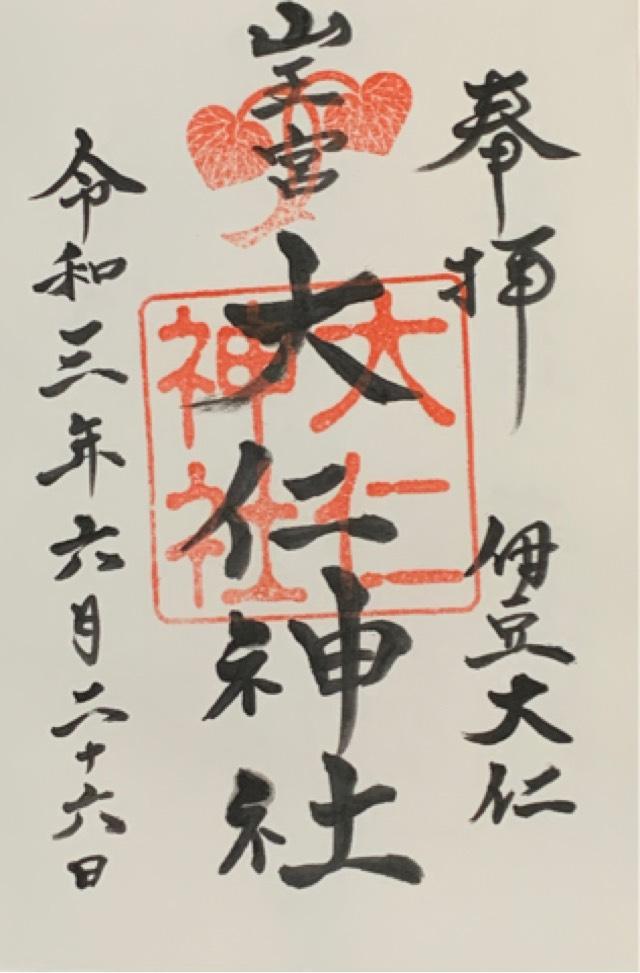 奉拝
伊豆大仁
山王宮
大仁神社
大仁
神社
令和三年六月二十六日